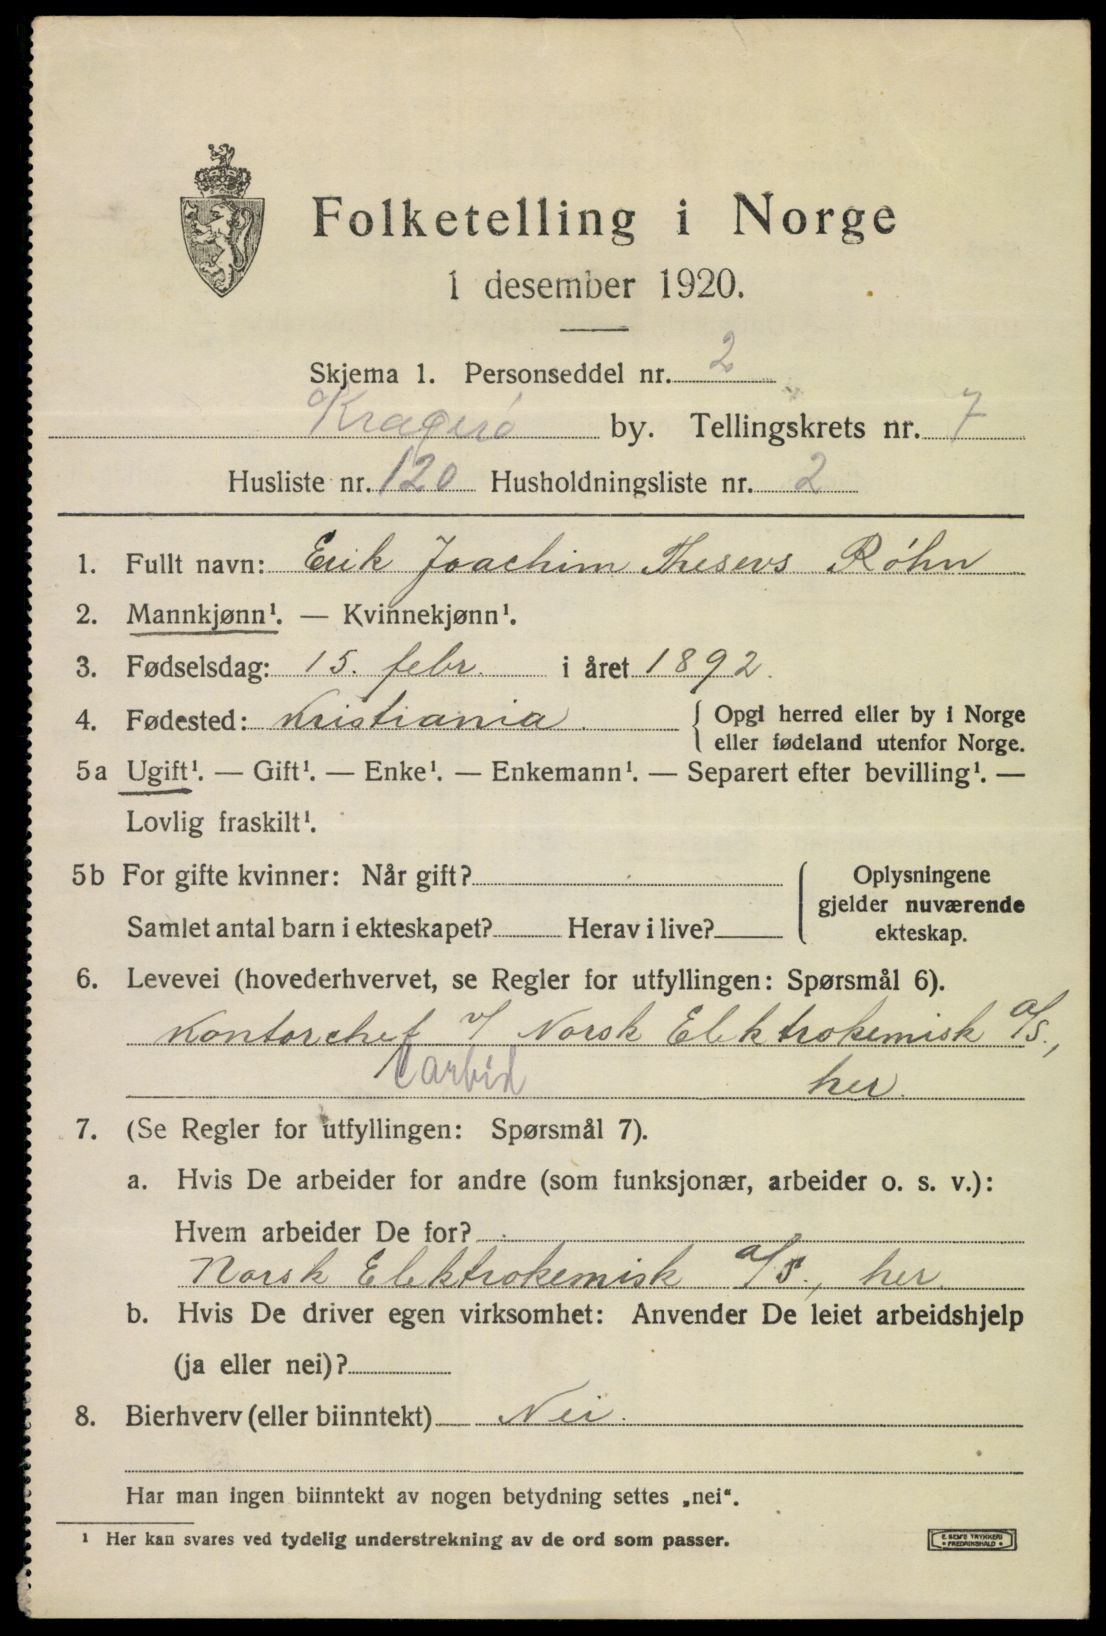 Folketelling i Norge
1 desember 1920.
Skjema 1. Personseddel nr. 2
Kragerø by. Tellingskrets nr. 7
Husliste nr. 120 Husholdningsliste nr. 2
1. Fullt navn: Erik Joachim Thesevs Røhn
2. Mannkjønn¹. — Kvinnekjønn¹.
3. Fødselsdag: 15. febr. i året 1892.
4. Fødested: Kristiania. Opgi herred eller by i Norge
eller fødeland utenfor Norge.
5a Ugift¹. — Gift¹. — Enke¹. — Enkemann¹. — Separert efter bevilling¹. —
Lovlig fraskilt¹.
5b For gifte kvinner: Når gift? Oplysningene
gjelder nuværende
Samlet antal barn i ekteskapet? Herav i live? ekteskap.
6. Levevei (hovederhvervet, se Regler for utfyllingen: Spørsmål 6).
Kontorchef v/ Norsk Elektrokemisk a/s.,
Carbid her.
7. (Se Regler for utfyllingen: Spørsmål 7).
a. Hvis De arbeider for andre (som funksjonær, arbeider o. s. v.):
Hvem arbeider De for?
Norsk Elektrokemisk a/s., her.
b. Hvis De driver egen virksomhet: Anvender De leiet arbeidshjelp
(ja eller nei)?
8. Bierhverv (eller biinntekt) Nei.
Har man ingen biinntekt av nogen betydning settes „nei".
¹ Her kan svares ved tydelig understrekning av de ord som passer.
E. SEM'S TRYKKERI
• FREDRIKSHALD •